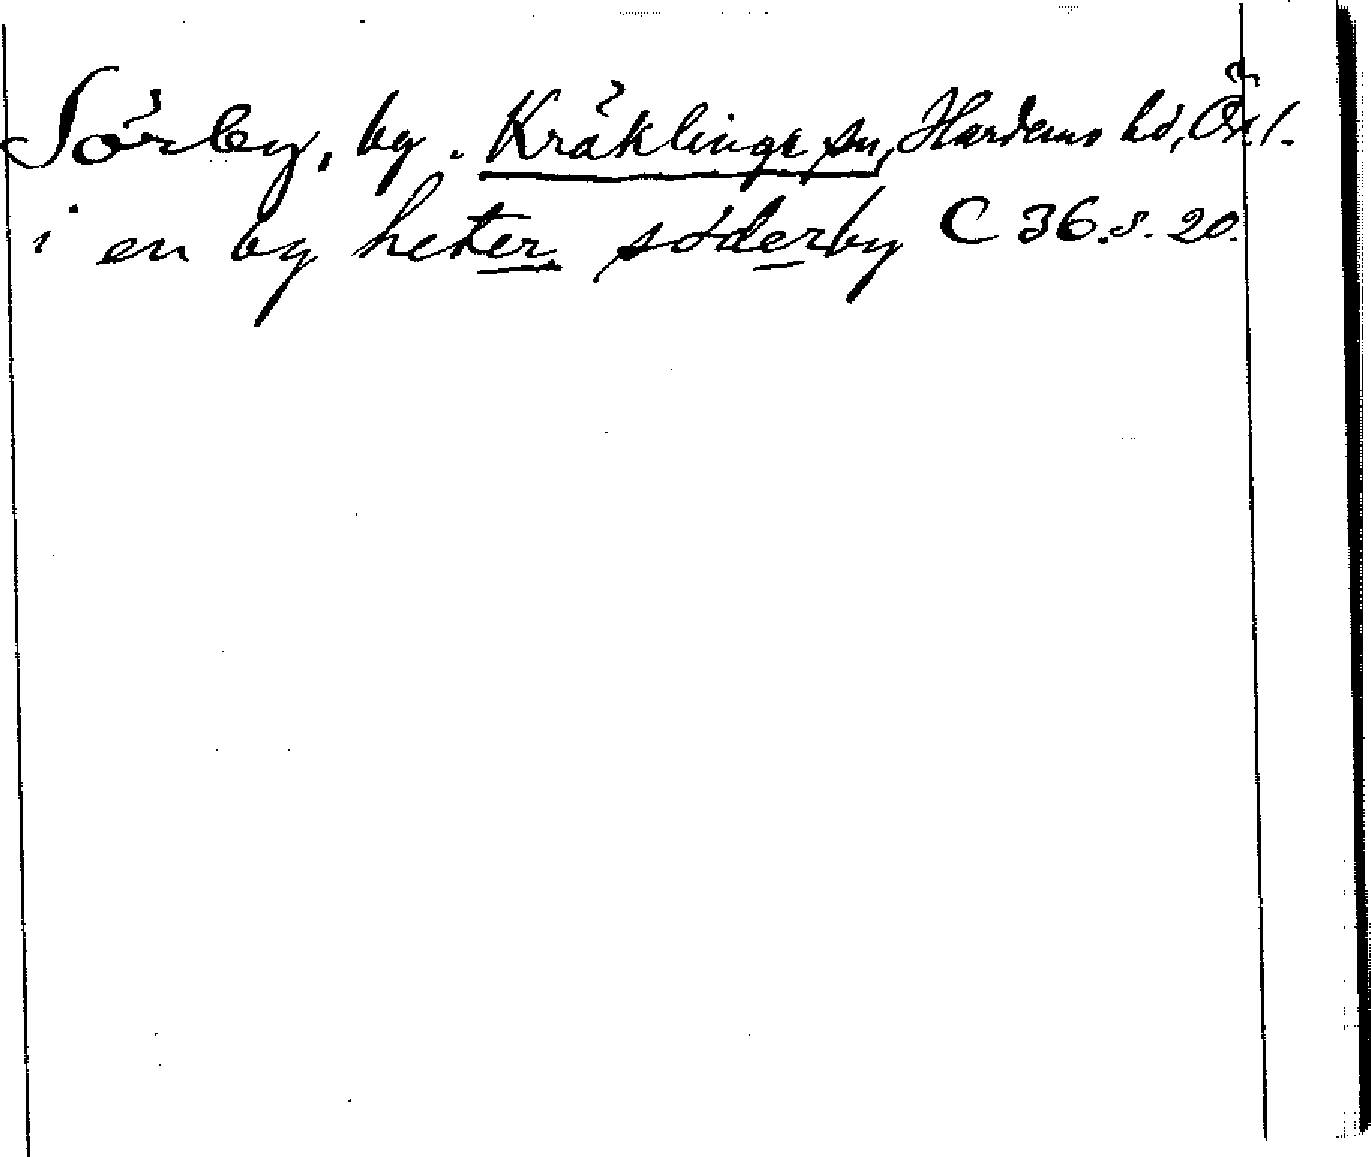 Sörby, by. Kräklinge sn, Hardemo hd, Ör l.
i en by heter söderby C 36.s. 20.